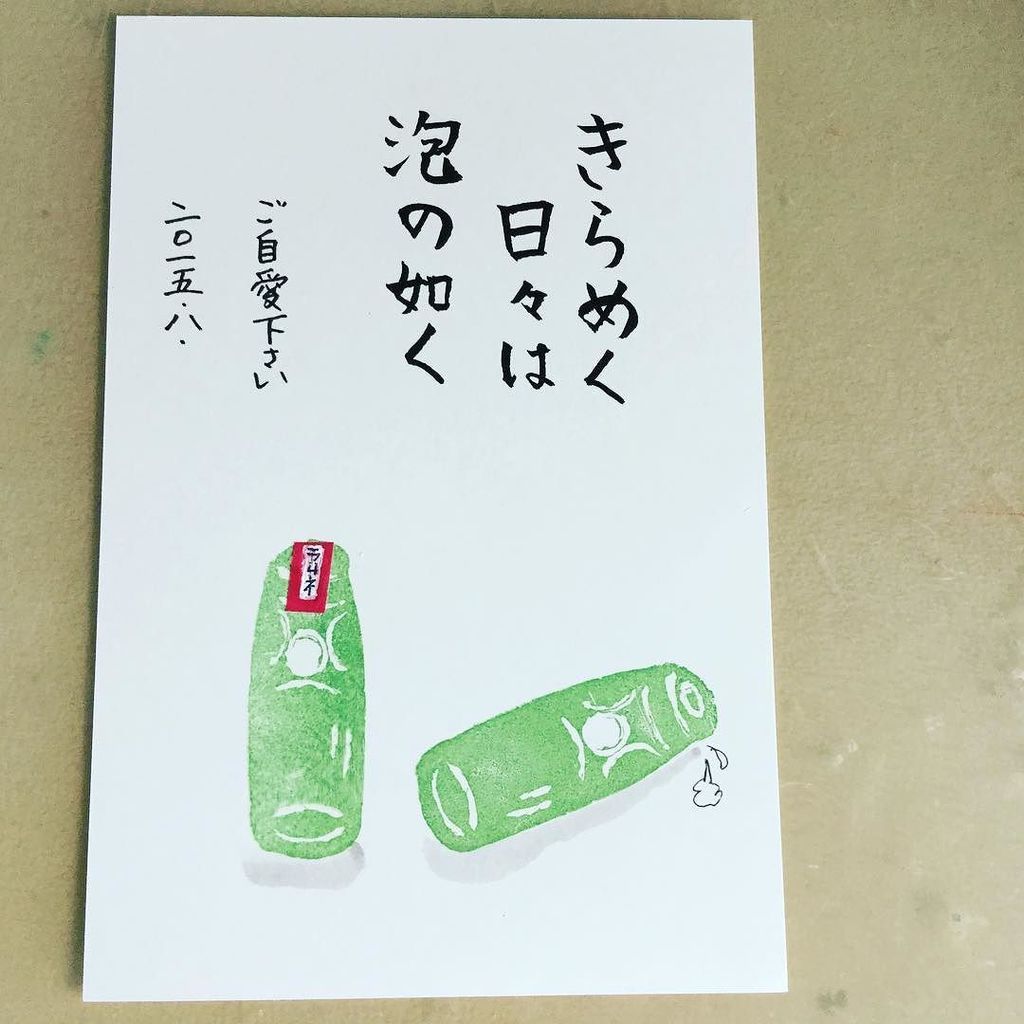 きらめく
日々は
泡の如く
ご自愛下さい
二〇一五.八.
ラムネ